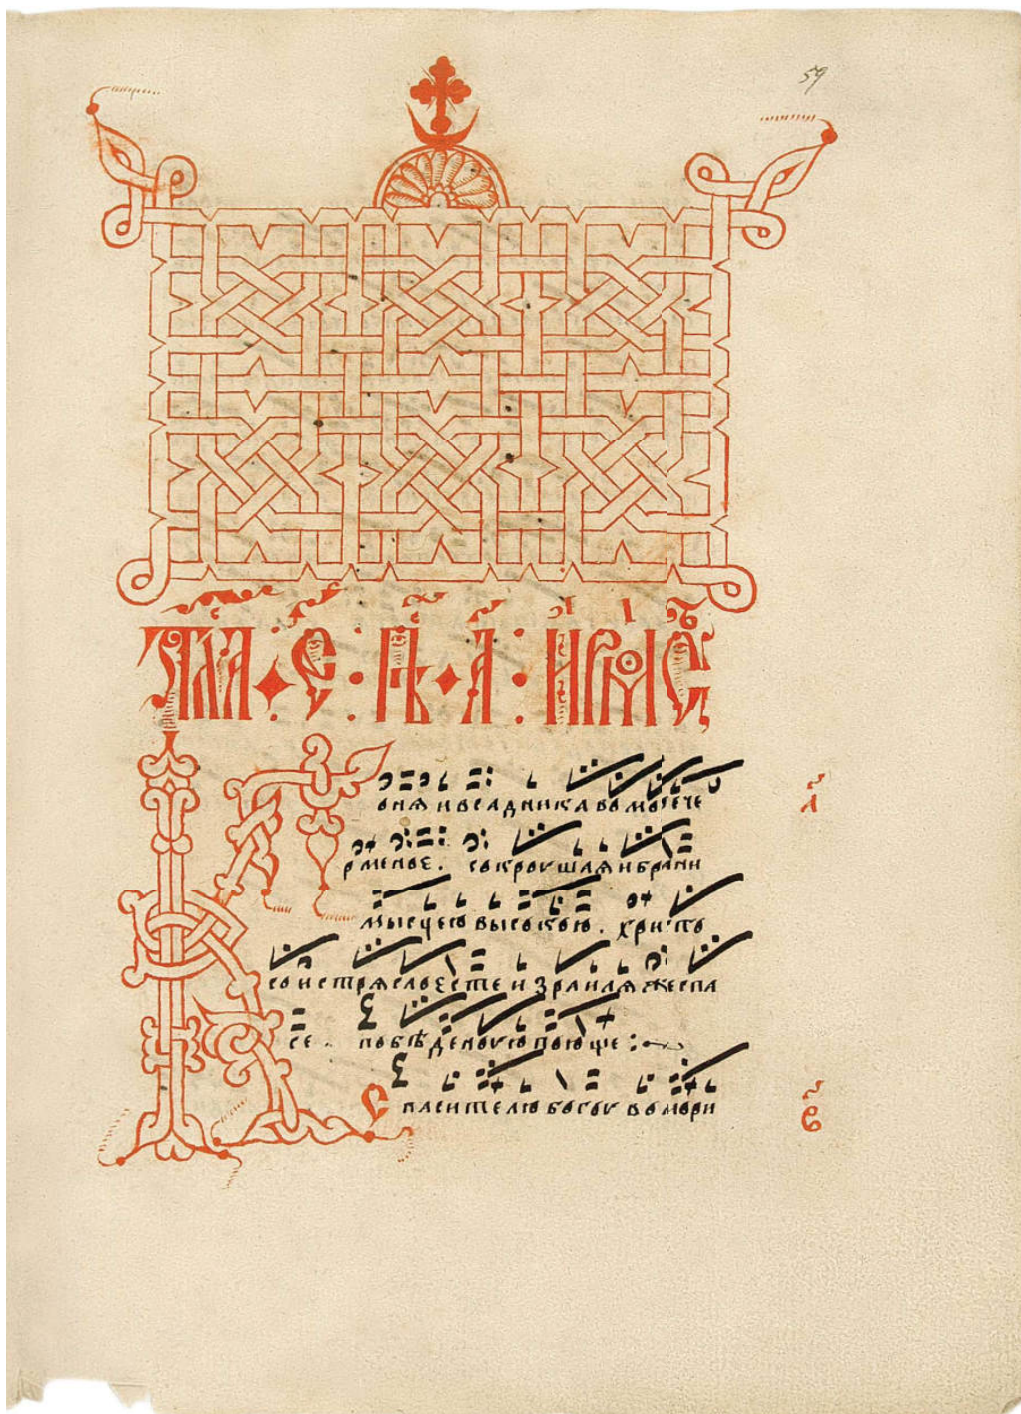 59
гла · є҃ : пѣ · а҃ : ирмос
Коня и всадника во море че
рмное . сокрушая и брани
мысцею высокою . христо
со истрясло есте и зраиля же спа
се . побѣденоую поюще :
Спасителю богоу во мори
а҃
в҃